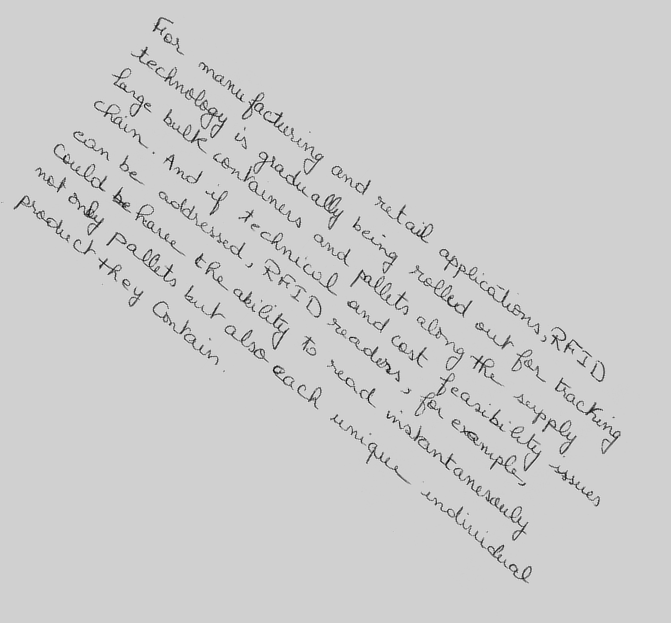 For manufacturing and retail applications, RFID
technology is gradually being rolled out for tracking
large bulk containers and pallets along the supply
chain. And if technical and cost feasibility issues
can be addressed, RFID readers, for example,
could have the ability to read instantanesouly
not only pallets but also each unique individual
product they contain.